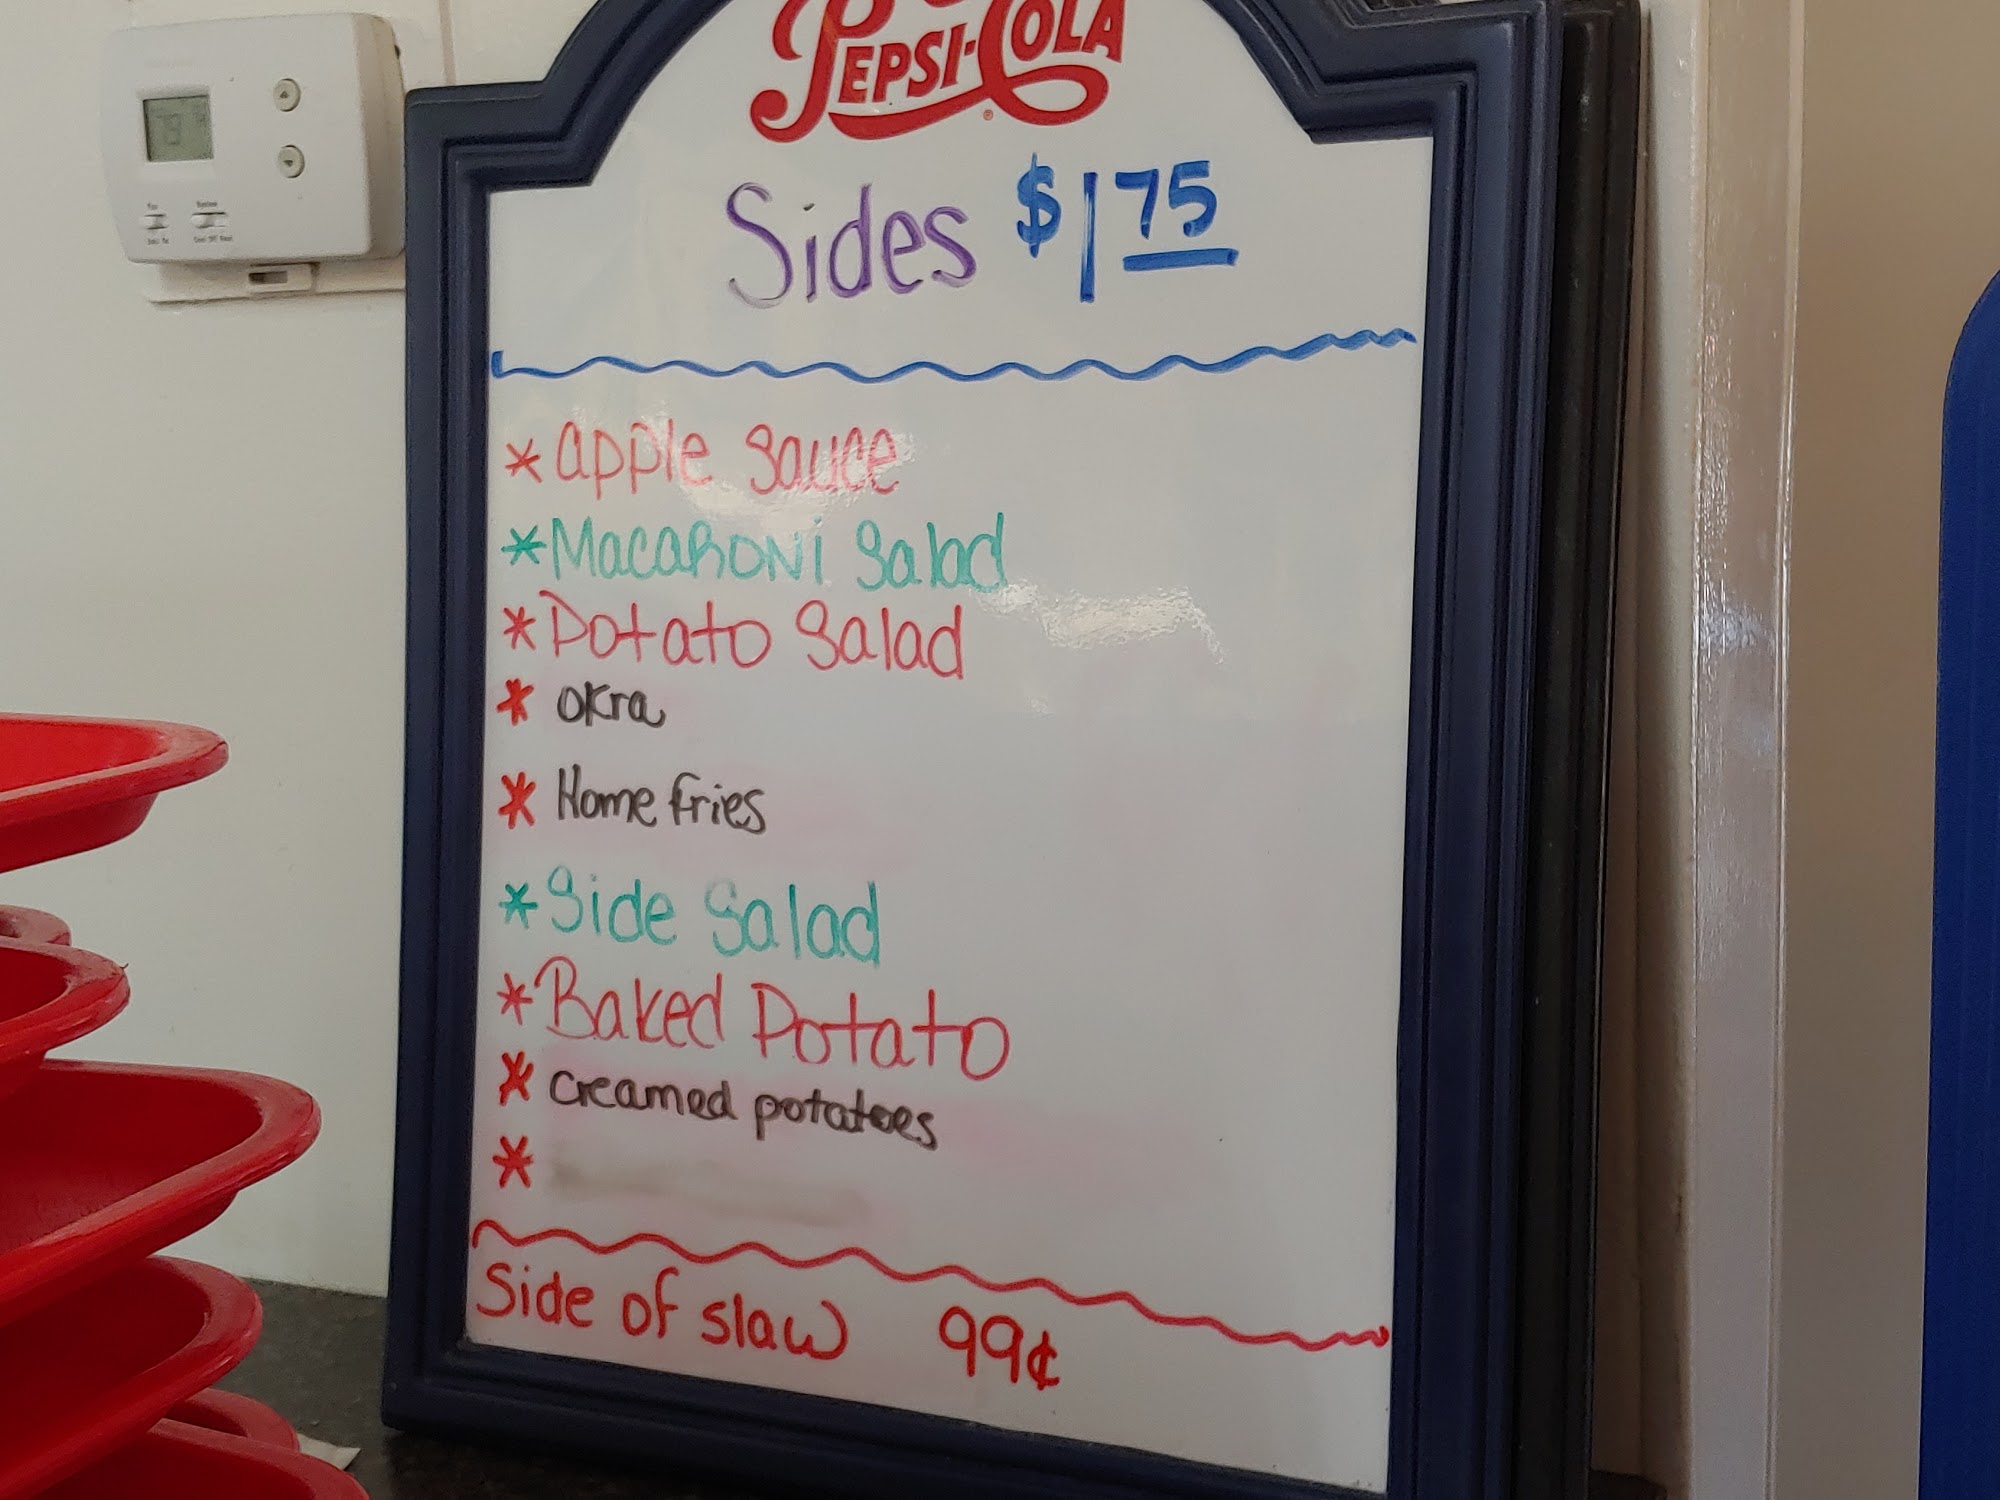 PEPSI-COLA
Sides $1 75
* apple sauce
* Macaroni Salad
* Potato Salad
* okra
* Home fries
* Side Salad
* Baked Potato
* creamed potatoes
*
Side of slaw 99¢